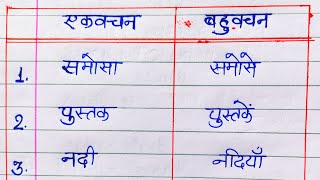 एकवचन बहुवचन
1. समोसा समोसे
2. पुस्तक पुस्तकें
3. नदी नदियाँ